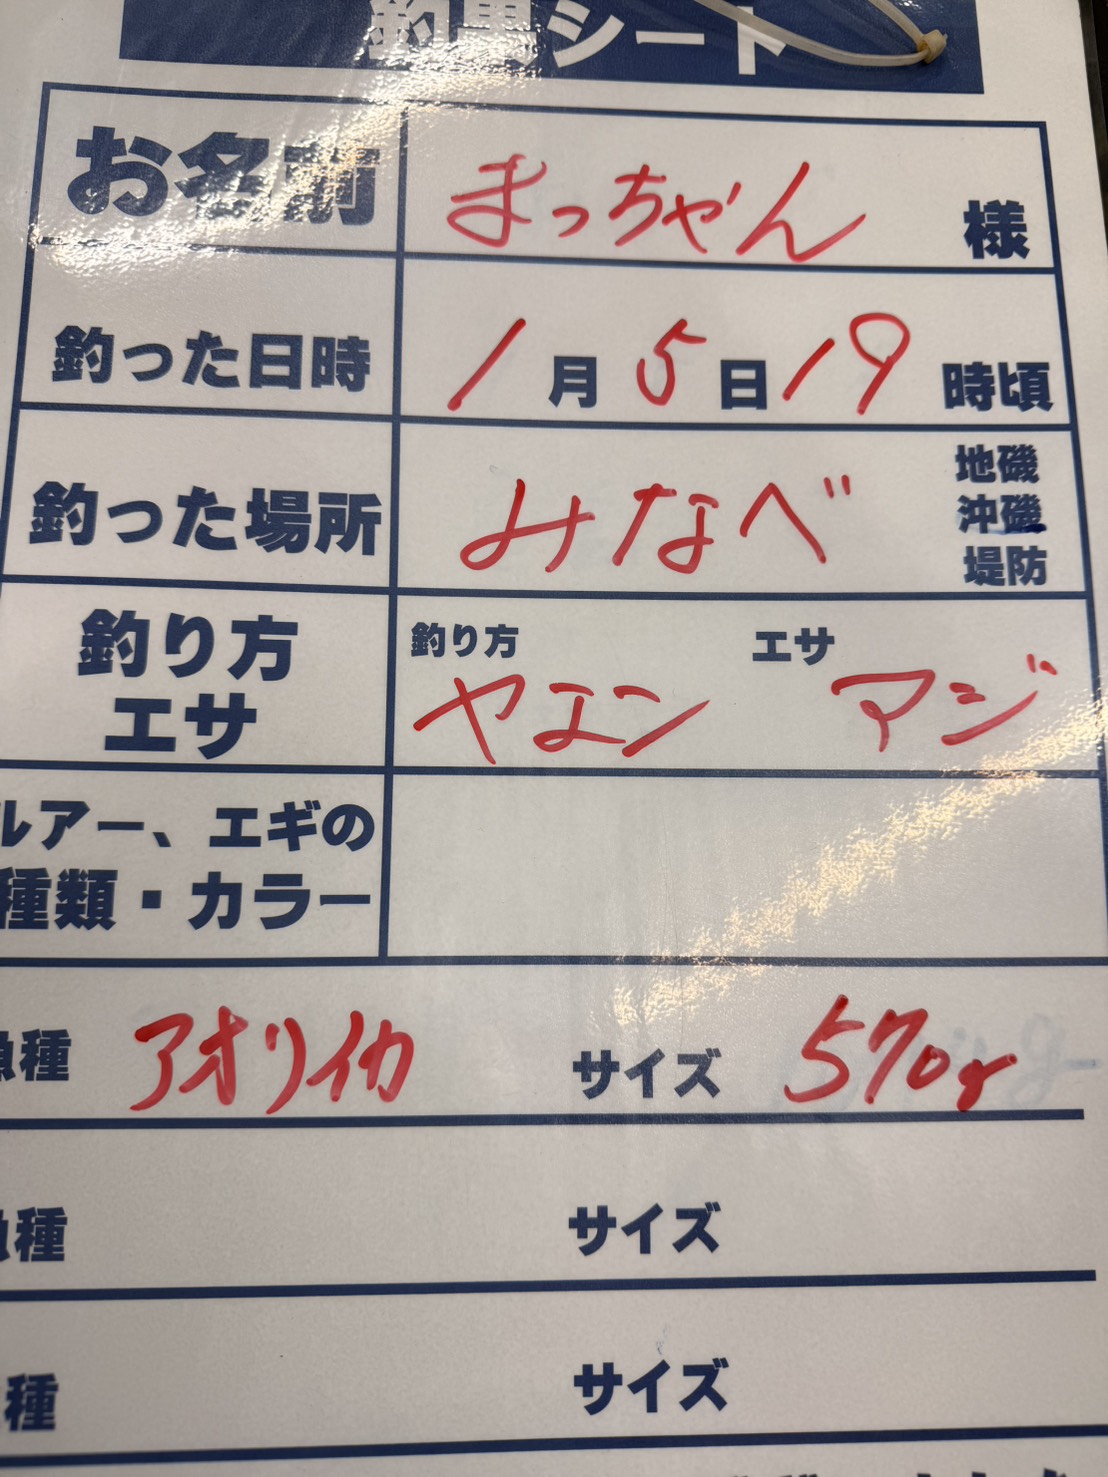 釣果シート
お名前 まっちゃん 様
釣った日時 1月5日19時頃
釣った場所 みなべ 地磯
沖磯
堤防
釣り方
エサ
釣り方 エサ
ヤエン アジ
ルアー、エギの
種類・カラー
魚種 アオリイカ サイズ 570g
魚種 サイズ
種 サイズ